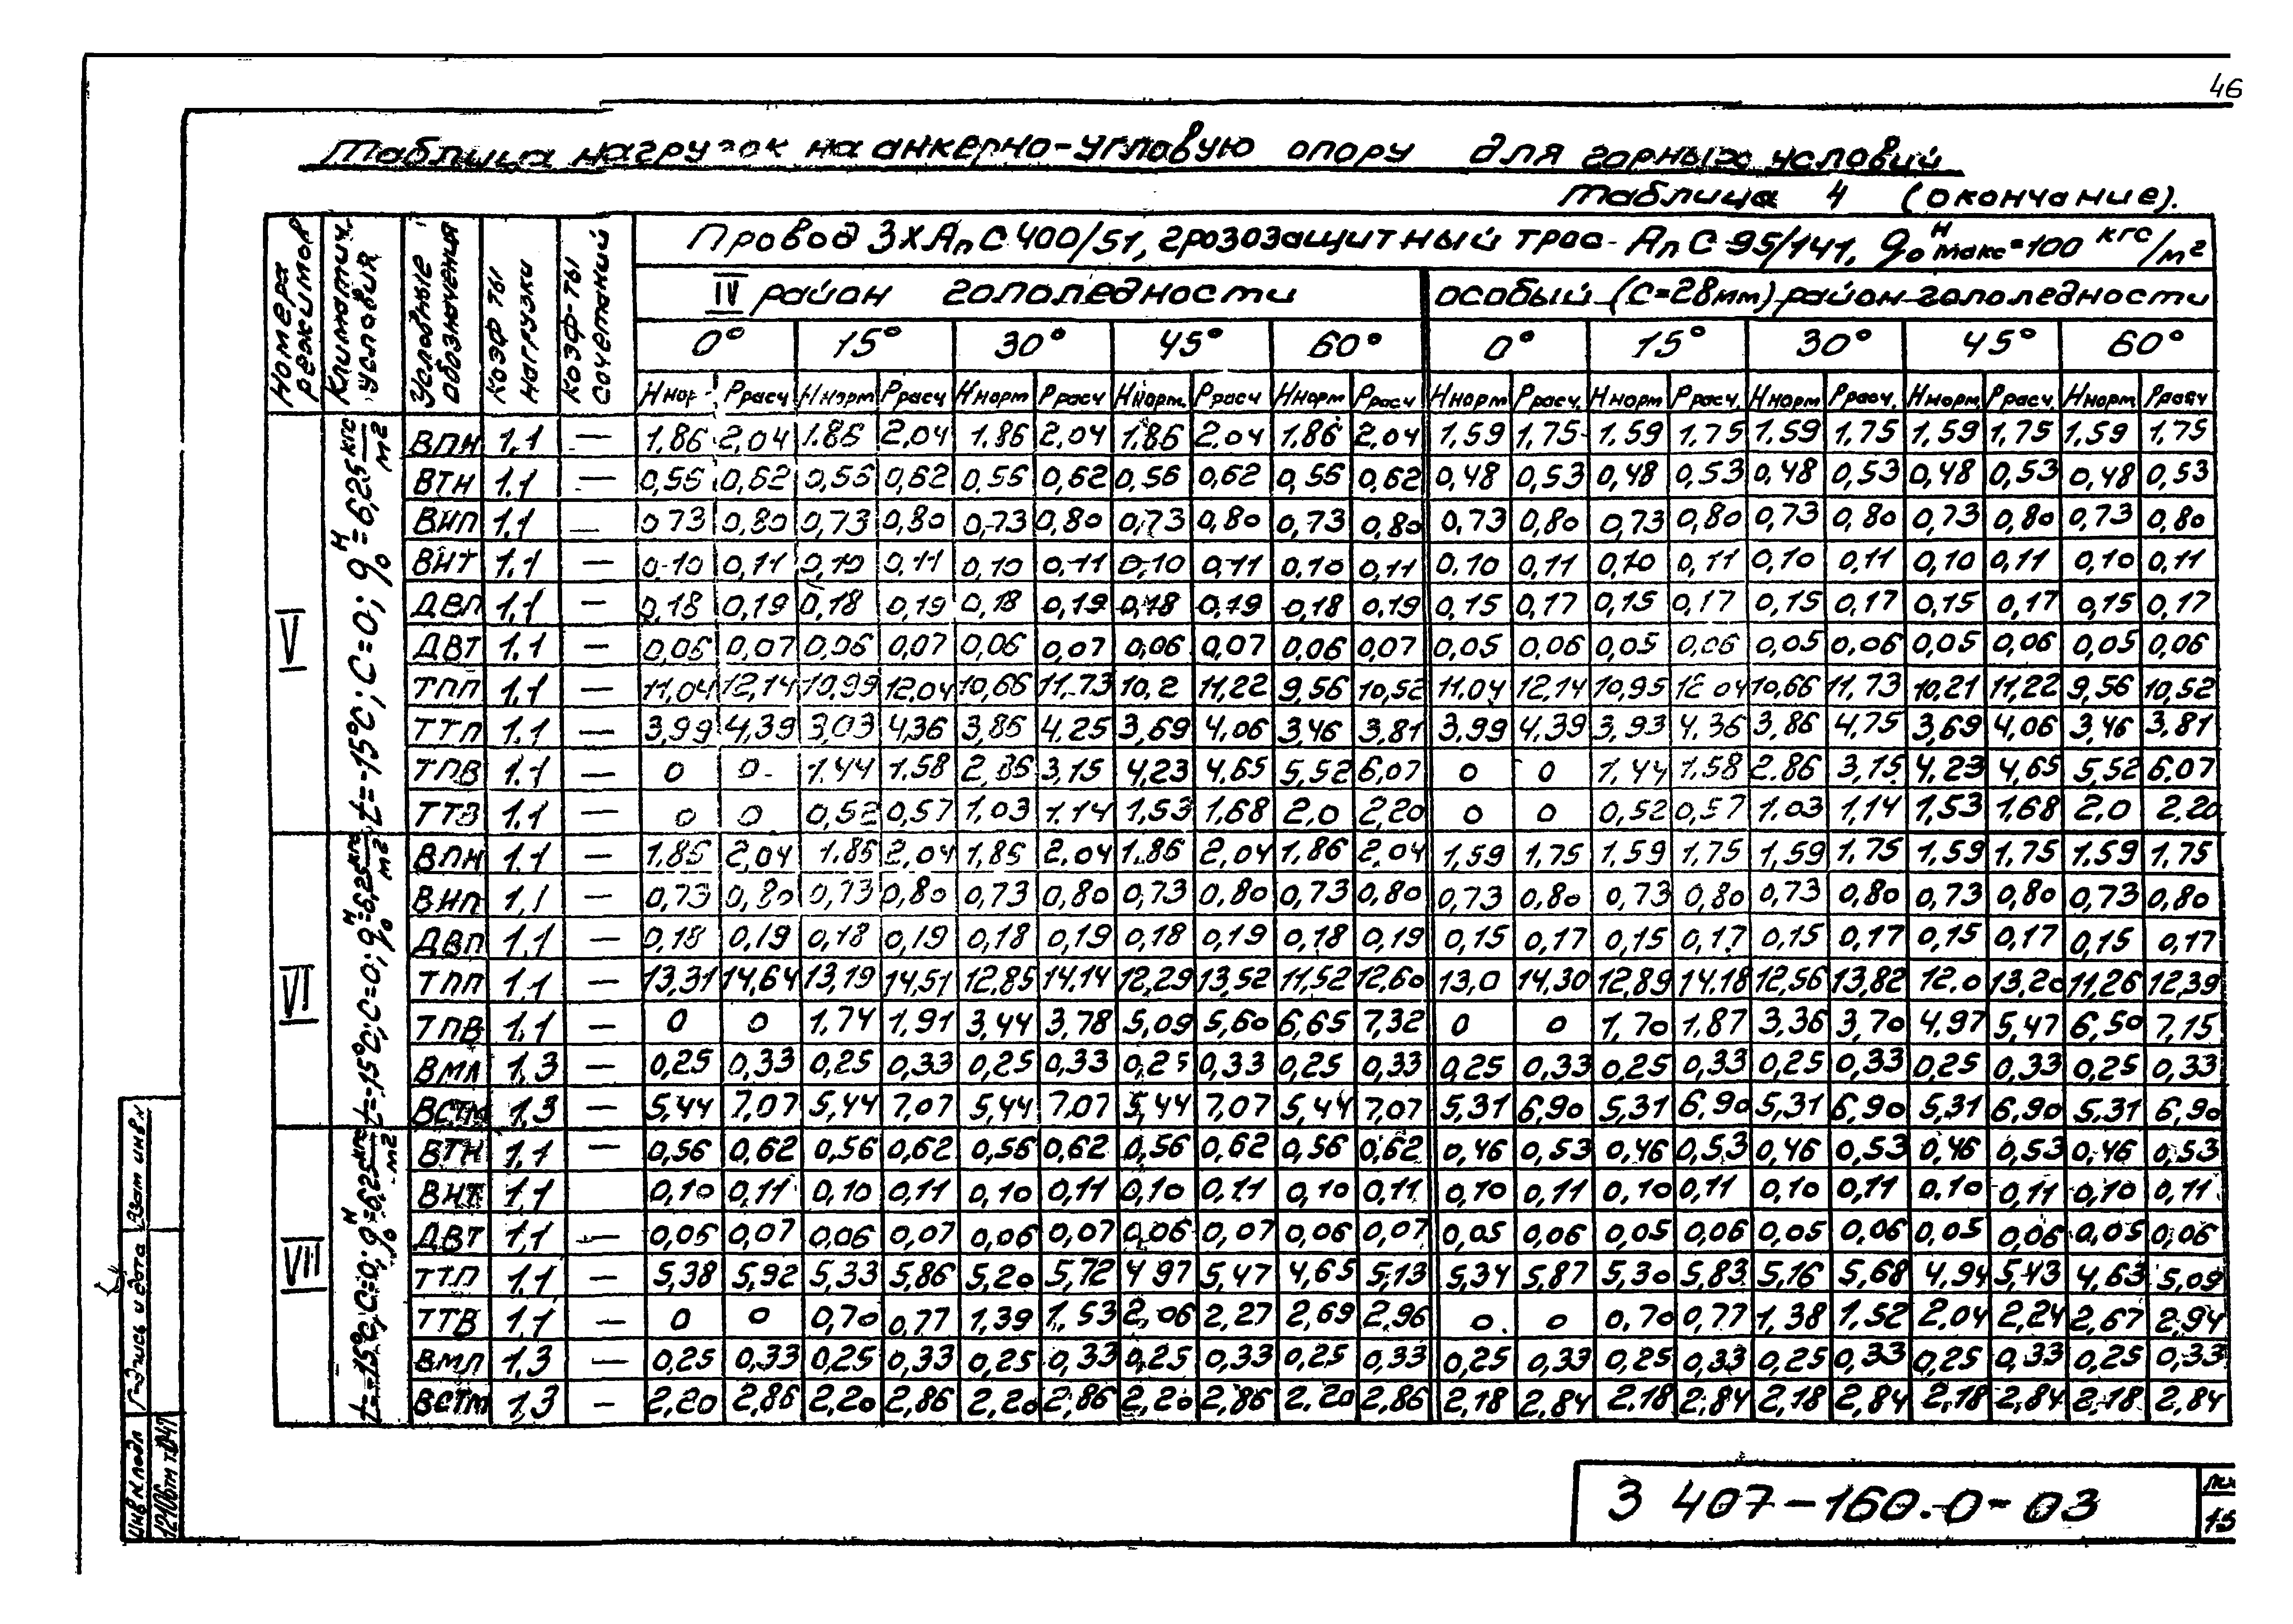 46
Таблица нагрузок на анкерно-угловую опору для горных условий
Таблица 4 (окончание).
Номера режимов Климатич. условия Условные обозначения Коэф-ты нагрузки Коэф-ты сочетаний Провод 3хАпС 400/51, грозозащитный трос АпС 95/141, q₀ᴴмакс=100 кгс/м²
IV район гололедности особый (С=28мм) район гололедности
0° 15° 30° 45° 60° 0° 15° 30° 45° 60°
Ннор Ррасч Ннорм Ррасч Ннорм Ррасч Ннорм. Ррасч Ннорм Ррасч Ннорм Ррасч. Ннорм Ррасч. Ннорм Ррасч. Ннорм Ррасч. Ннорм Ррасч
V t=-15°С; С=0; q₀ᴴ=6,25 кгс/м²
ВПН 1.1 — 1,86 2,04 1.86 2,04 1.86 2,04 1.86 2,04 1.86 2,04 1,59 1,75 1.59 1.75 1.59 1,75 1,59 1,75 1.59 1.75
ВТН 1.1 — 0,56 0,62 0,56 0,62 0,56 0,62 0,56 0,62 0,56 0,62 0,48 0,53 0,48 0,53 0,48 0,53 0,48 0,53 0,48 0,53
ВНП 1.1 — 0 73 0,80 0,73 0,80 0,73 0,80 0,73 0,80 0,73 0,80 0,73 0,80 0,73 0,80 0,73 0,80 0,73 0,80 0,73 0,80
ВНТ 1.1 — 0.10 0,11 0,10 0,11 0,10 0,11 0,10 0,11 0,10 0,11 0,10 0,11 0,10 0,11 0,10 0,11 0,10 0,11 0,10 0,11
ДВП 1.1 — 0,18 0,19 0,18 0,19 0,18 0,19 0,18 0,19 0,18 0,19 0,15 0,17 0,15 0,17 0,15 0,17 0,15 0,17 0,15 0,17
ДВТ 1.1 — 0,06 0,07 0,06 0,07 0,06 0,07 0,06 0,07 0,06 0,07 0,05 0,06 0,05 0,06 0,05 0,06 0,05 0,06 0,05 0,06
ТПП 1.1 — 11,04 12,14 10,99 12,04 10,66 11,73 10,2 11,22 9,56 10,52 11,04 12,14 10,95 12 04 10,66 11,73 10,21 11,22 9,56 10,52
ТТП 1.1 — 3,99 4,39 3,03 4,36 3,86 4.25 3,69 4,06 3,46 3,81 3,99 4.39 3,93 4.36 3,86 4,75 3,69 4,06 3,46 3,81
ТПВ 1.1 — 0 0 1.44 1.58 2,86 3,15 4,23 4,65 5,52 6,07 0 0 1,44 1.58 2.86 3,15 4,23 4,65 5,52 6,07
ТТВ 1.1 — 0 0 0,52 0,57 1,03 1.14 1,53 1,68 2,0 2,20 0 0 0,52 0,57 1.03 1,14 1,53 1,68 2,0 2,20
VI t=-15°С; С=0; q₀ᴴ=6,25 кгс/м²
ВПН 1.1 — 1,86 2,04 1.86 2,04 1,86 2,04 1,86 2,04 1,86 2,04 1,59 1,75 1,59 1,75 1,59 1,75 1,59 1,75 1.59 1,75
ВНП 1,1 — 0,73 0,80 0,73 0,80 0,73 0,80 0,73 0,80 0,73 0,80 0,73 0,80 0,73 0,80 0,73 0,80 0,73 0,80 0,73 0,80
ДВП 1.1 — 0,18 0,19 0,18 0,19 0,18 0,19 0,18 0,19 0,18 0,19 0,15 0,17 0,15 0,17 0,15 0,17 0,15 0,17 0,15 0,17
ТПП 1.1 — 13,31 14,64 13,19 14,51 12,85 14,14 12,29 13,52 11,52 12,60 13,0 14,30 12,89 14,18 12,56 13,82 12,0 13,20 11,26 12,39
ТПВ 1.1 — 0 0 1,74 1,91 3,44 3,78 5,09 5,60 6,65 7,32 0 0 1,70 1,87 3,36 3,70 4,97 5,47 6,50 7,15
ВМЛ 1,3 — 0,25 0,33 0,25 0,33 0,25 0,33 0,25 0,33 0,25 0,33 0,25 0,33 0,25 0,33 0,25 0,33 0,25 0,33 0,25 0,33
ВСТМ 1,3 — 5,44 7,07 5,44 7,07 5,44 7,07 5,44 7,07 5,44 7,07 5,31 6,90 5,31 6,90 5,31 6,90 5,31 6,90 5,31 6,90
VII t=-15°С; С=0; q₀ᴴ=6,25 кгс/м²
ВТН 1,1 — 0,56 0,62 0,56 0,62 0,56 0,62 0,56 0,62 0,56 0,62 0,46 0,53 0,46 0,53 0,46 0,53 0,46 0,53 0,46 0,53
ВНТ 1.1 0,10 0,11 0,10 0,11 0,10 0,11 0,10 0,11 0,10 0,11 0,10 0,11 0,10 0,11 0,10 0,11 0.10 0,11 0,10 0,11
ДВТ 1,1 — 0,06 0,07 0,06 0,07 0,06 0,07 0,06 0,07 0,06 0,07 0,05 0,06 0,05 0,06 0,05 0,06 0,05 0,06 0,05 0,06
ТТП 1,1 — 5,38 5,92 5,33 5,86 5,20 5,72 4 97 5,47 4,65 5,13 5,34 5,87 5,30 5,83 5,16 5,68 4,94 5,43 4,63 5,09
ТТВ 1,1 — 0 0 0,70 0,77 1,39 1,53 2,06 2,27 2,69 2,96 0 0 0,70 0,77 1,38 1,52 2,04 2,24 2,67 2,94
ВМЛ 1,3 — 0,25 0,33 0,25 0,33 0,25 0,33 0,25 0,33 0,25 0,33 0,25 0,33 0,25 0,33 0,25 0,33 0,25 0,33 0,25 0,33
ВСТМ 1,3 — 2,20 2,86 2,20 2,86 2,20 2,86 2,20 2,86 2,20 2,86 2,18 2,84 2,18 2,84 2,18 2,84 2,18 2,84 2,18 2,84
Взам инв.
Подпись и дата
Инв N подл
3 407-160.0-03